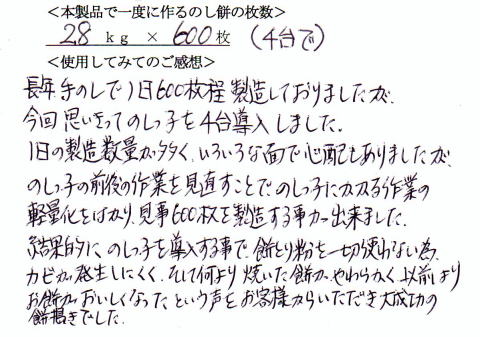 <本製品で一度に作るのし餅の枚数>
2.8 kg × 600枚 (4台で)
<使用してみてのご感想>
長年手のしで1日600枚程製造しておりましたが、
今回思いきってのしっ子を4台導入しました。
1日の製造数量が多く、いろいろな面で心配もありましたが、
のしっ子の前後の作業を見直すことでのしっ子にかかる作業の
軽量化をはかり、見事600枚を製造する事が出来ました。
結果的に、のしっ子を導入する事で、餅とり粉を一切使わない為、
カビが発生しにくく、そして何より焼いた餅が、やわらかく以前より
お餅がおいしくなったという声をお客様からいただき大成功の
餅搗きでした。